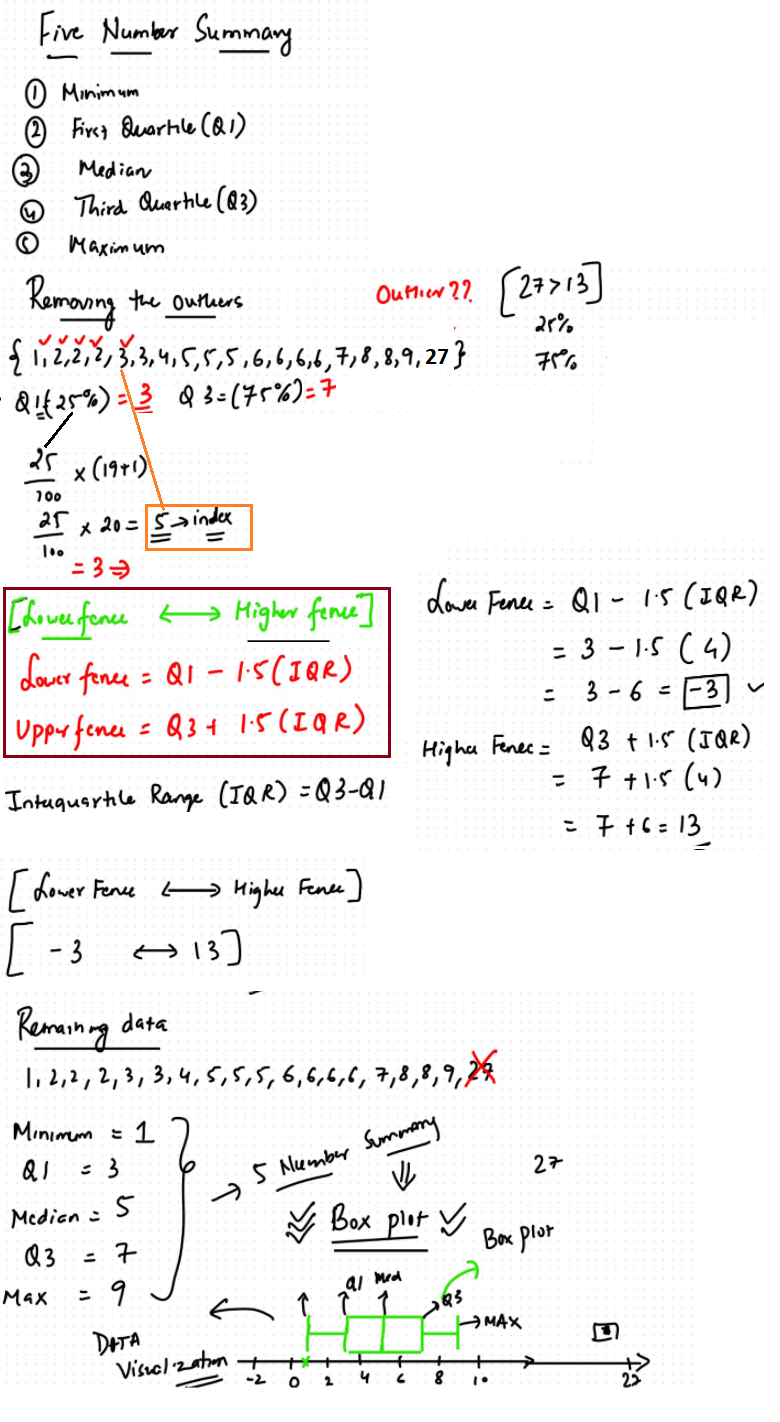 Five Number Summary
① Minimum
② First Quartile (Q1)
③ Median
④ Third Quartile (Q3)
⑤ Maximum
Removing the outliers
Outlier ??
[27>13]
25%
75%
{1,2,2,2,3,3,4,5,5,5,6,6,6,6,7,8,8,9,27}
Q1(25%) = 3 Q3=(75%)=7
25/100 × (19+1)
25/100 × 20 = 5 → index
= 3 ⇒
[Lower fence ⟷ Higher fence]
Lower fence = Q1 - 1.5(IQR)
Upper fence = Q3 + 1.5(IQR)
Lower Fence = Q1 - 1.5 (IQR)
= 3 - 1.5 (4)
= 3 - 6 = -3 ✓
Higher Fence = Q3 + 1.5 (IQR)
= 7 + 1.5 (4)
= 7 + 6 = 13
Interquartile Range (IQR) = Q3-Q1
[Lower Fence ⟷ Higher Fence]
[-3 ⟷ 13]
Remaining data
1,2,2,2,3,3,4,5,5,5,6,6,6,6,7,8,8,9,27
Minimum = 1
Q1 = 3
Median = 5
Q3 = 7
Max = 9
→ 5 Number Summary
⇓
Box plot
27
Box plot
Q1 Med
Q3
→ MAX
DATA
Visualization
-2 0 2 4 6 8 10 27